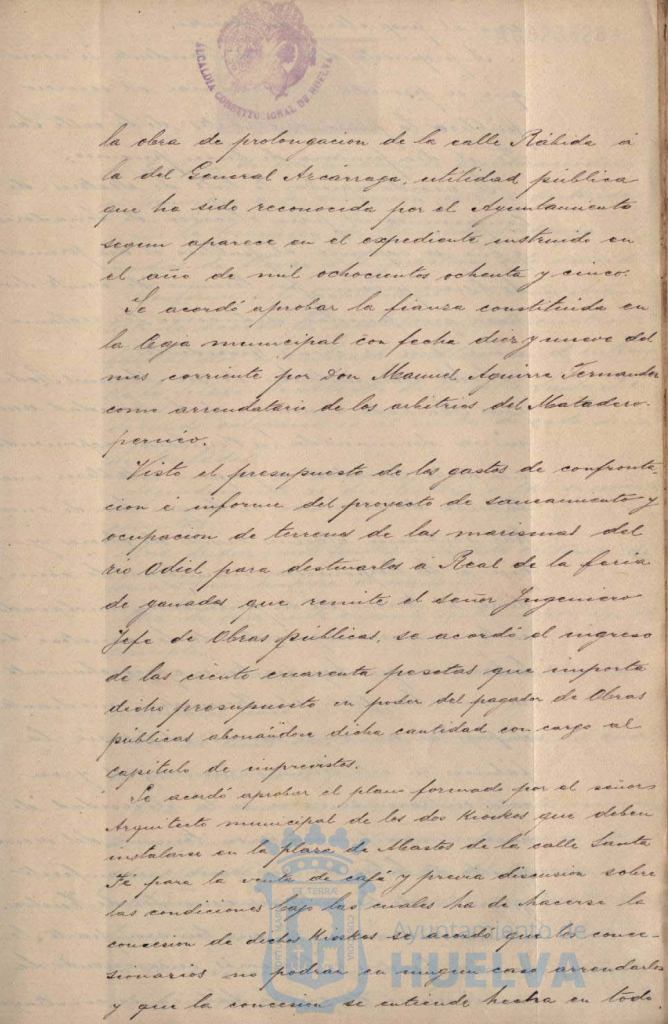 ALCALDIA CONSTITUCIONAL DE HUELVA
la obra de prolongacion de la calle Rábida á
la del General Azcárraga, utilidad pública
que ha sido reconocida por el Ayuntamiento
segun aparece en el expediente instruido en
el año de mil ochocientos ochenta y cinco.
Se acordó aprobar la fianza constituida en
la Caja municipal con fecha diez y nueve del
mes corriente por Don Manuel Aguirre Fernandez
como arrendatario de los arbitrios del Matadero
Visto el presupuesto de los gastos de confronta-
cion é informe del proyecto de saneamiento y
ocupacion de terrenos de las marismas del
rio Odiel para destinarlos á Real de la feria
de ganados que remite el señor Ingeniero
Jefe de Obras públicas, se acordó el ingreso
de las ciento cuarenta pesetas que importa
dicho presupuesto en poder del pagador de Obras
públicas abonándose dicha cantidad con cargo al
capitulo de imprevistos.
Se acordó aprobar el plano formado por el señor
Arquitecto municipal de los dos Kioskos que deben
instalarse en la plaza de Abastos de la calle Santa
Fé para la venta de café y previa discusion sobre
las condiciones bajo las cuales ha de hacerse la
concesion de dichos Kioskos se acordó que los conce-
sionarios no podrán en ningun caso arrendarlos
y que la concesion se entiende hecha en todo
Ayuntamiento de
HUELVA